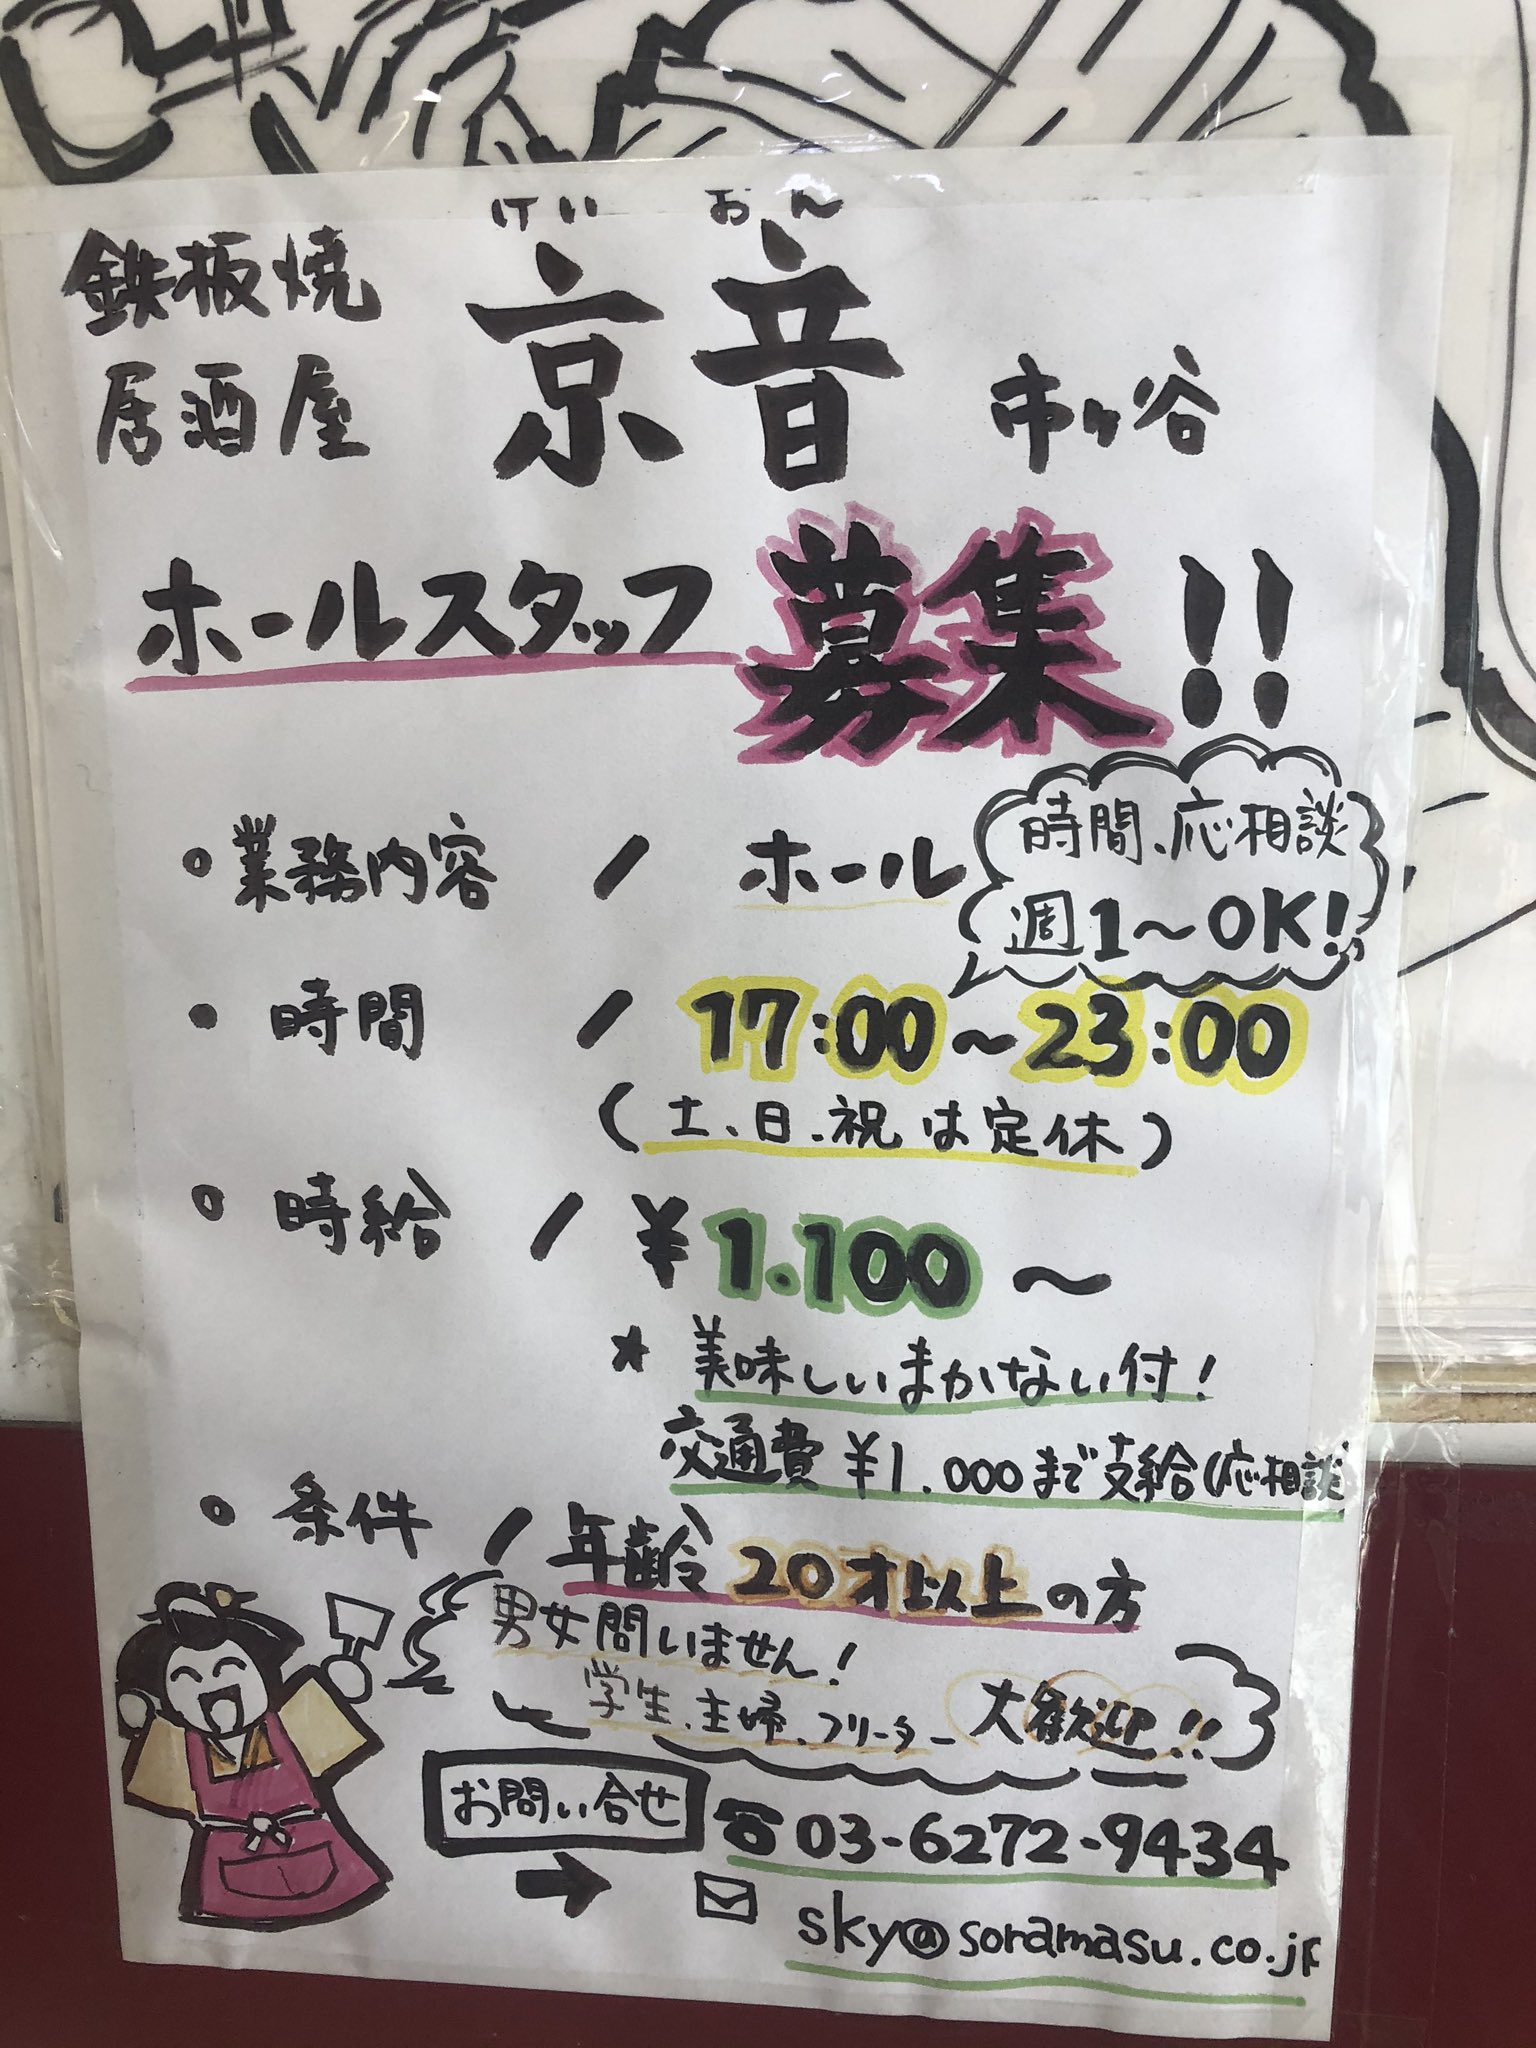 けいおん
鉄板焼
居酒屋 京音 市ヶ谷
ホールスタッフ 募集!!
・業務内容 / ホール
時間、応相談
週1～OK!
・時間 / 17:00～23:00
(土、日、祝は定休)
・時給 / ¥1.100～
* 美味しいまかない付!
交通費¥1.000まで支給(応相談)
・条件 / 年齢20才以上の方
男女問いません!
学生、主婦、フリーター 大歓迎!!
お問い合せ ☎03-6272-9434
→ ✉ sky@soramasu.co.jp